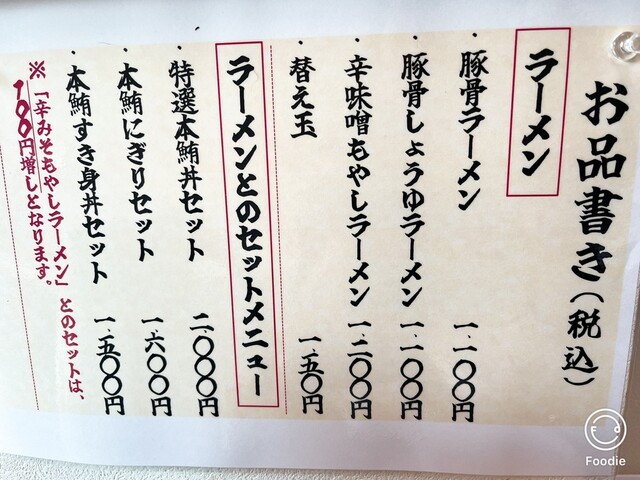 お品書き(税込)
ラーメン
・豚骨ラーメン 一、一〇〇円
・豚骨しょうゆラーメン 一、一〇〇円
・辛味噌もやしラーメン 一、二〇〇円
・替え玉 一、五〇円
ラーメンとのセットメニュー
・特選本鮪丼セット 二、〇〇〇円
・本鮪にぎりセット 一、六〇〇円
・本鮪すき身丼セット 一、五〇〇円
※「辛みそもやしラーメン」とのセットは、
100円増しとなります。
Foodie